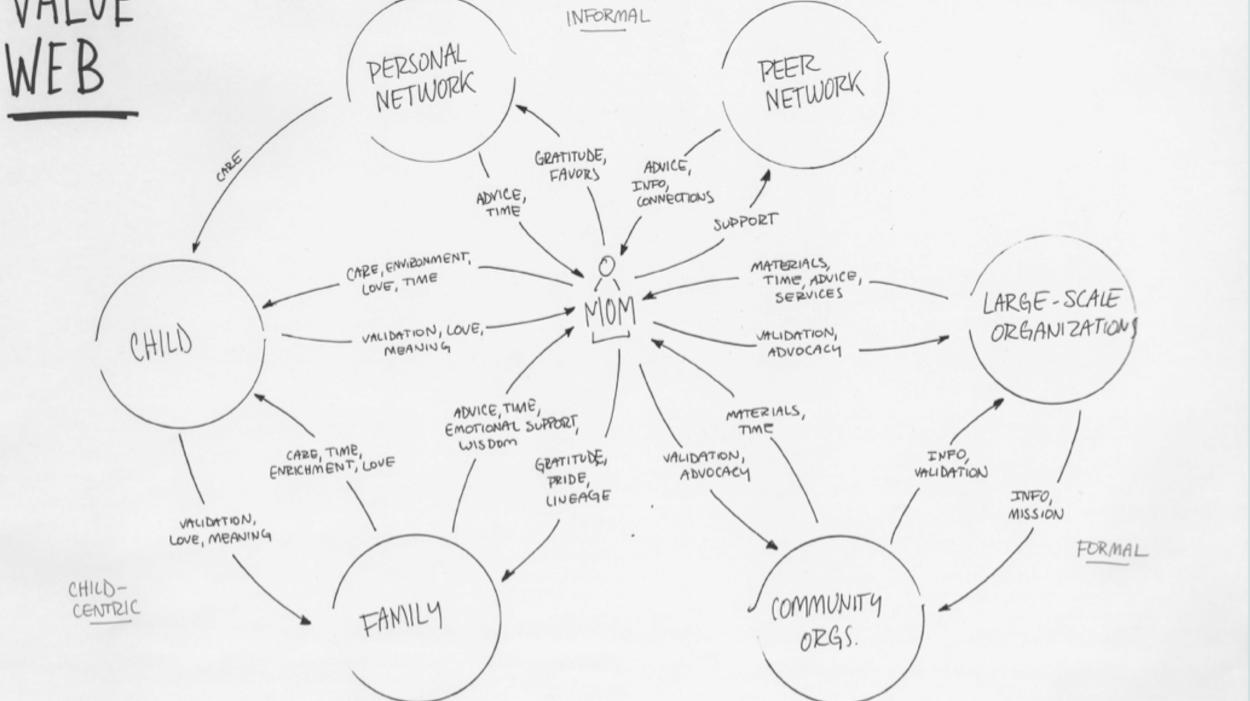 VALUE
WEB
INFORMAL
PERSONAL
NETWORK
PEER
NETWORK
CARE
GRATITUDE,
FAVORS
ADVICE,
TIME
ADVICE,
INFO,
CONNECTIONS
SUPPORT
CARE, ENVIRONMENT,
LOVE, TIME
MATERIALS,
TIME, ADVICE,
SERVICES
MOM
CHILD
LARGE-SCALE
ORGANIZATIONS
VALIDATION, LOVE,
MEANING
VALIDATION,
ADVOCACY
ADVICE, TIME,
EMOTIONAL SUPPORT,
WISDOM
MATERIALS,
TIME
CARE, TIME,
ENRICHMENT, LOVE
GRATITUDE,
PRIDE,
LINEAGE
VALIDATION,
ADVOCACY
INFO,
VALIDATION
INFO,
MISSION
VALIDATION,
LOVE, MEANING
FORMAL
CHILD-
CENTRIC
FAMILY
COMMUNITY
ORGS.